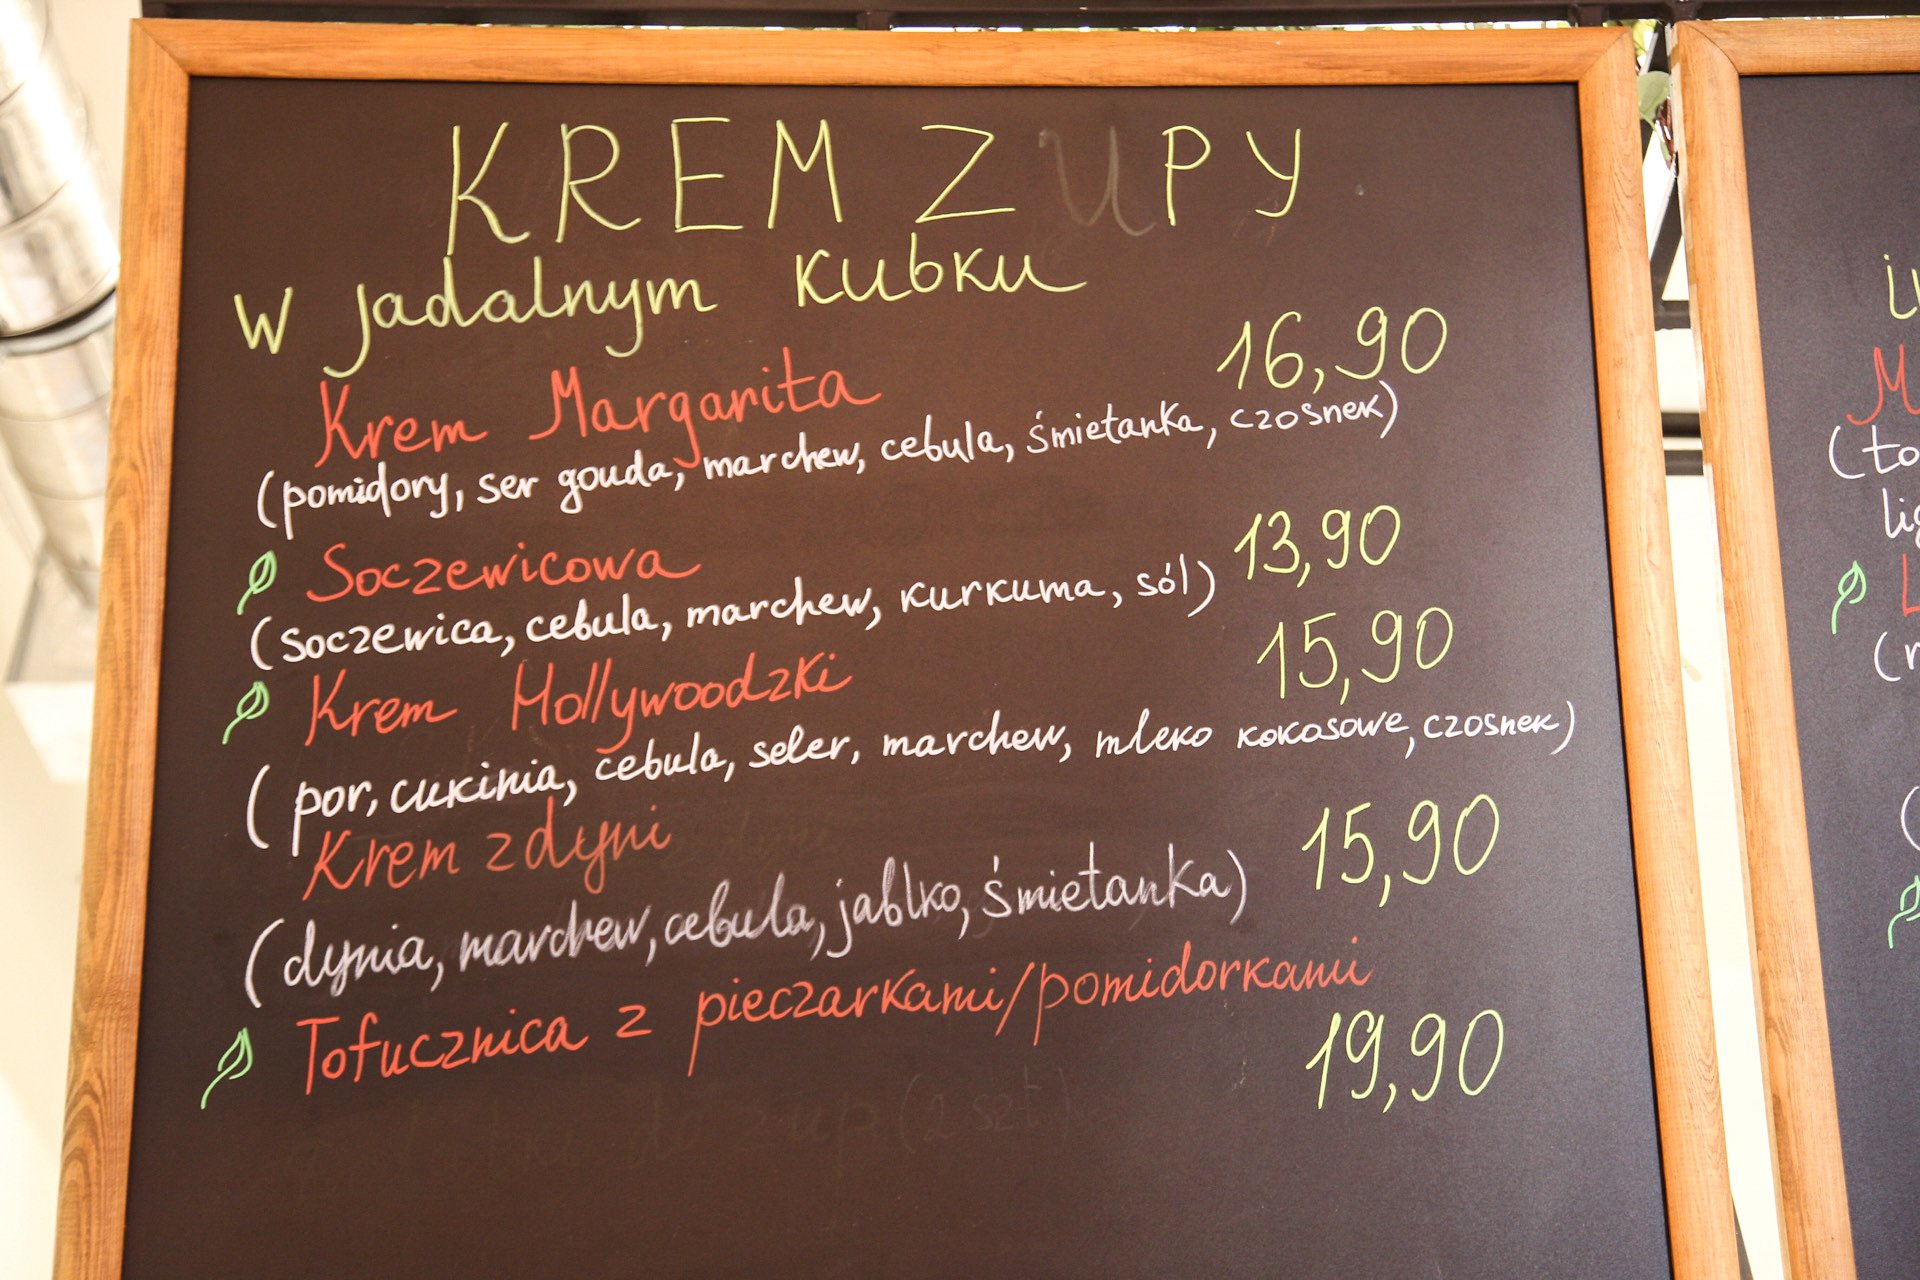 KREM ZUPY
W jadalnym kubku
Krem Margarita 16,90
(pomidory, ser gouda, marchew, cebula, śmietanka, czosnek)
Soczewicowa 13,90
(soczewica, cebula, marchew, kurkuma, sól)
Krem Hollywoodzki 15,90
(por, cukinia, cebula, seler, marchew, mleko kokosowe, czosnek)
Krem z dyni 15,90
(dynia, marchew, cebula, jablko, śmietanka)
Tofucznica z pieczarkami/pomidorkami 19,90
(2 szt)